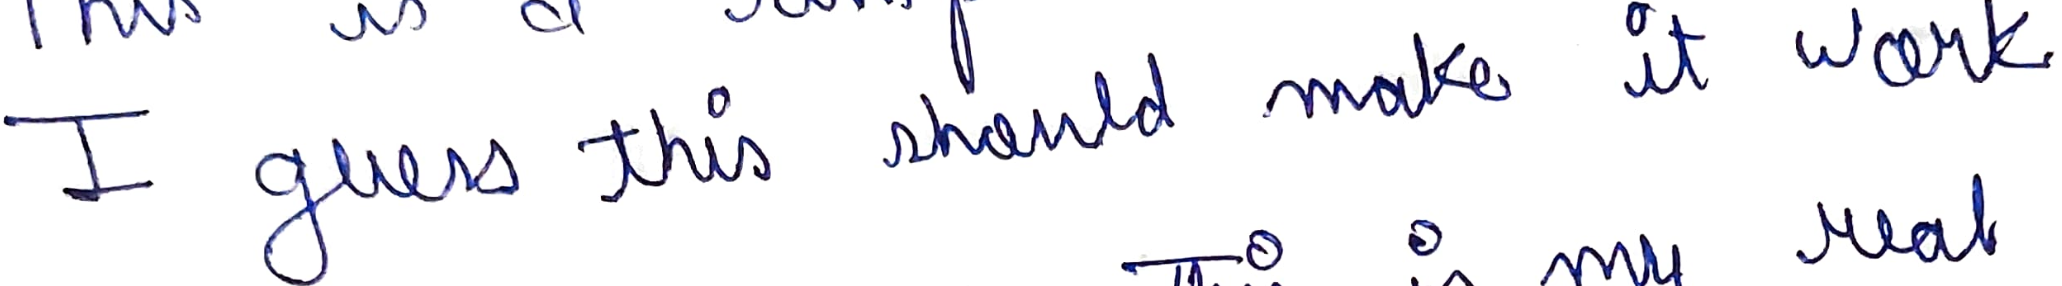 This is a
I guess this should make it work
This is my real